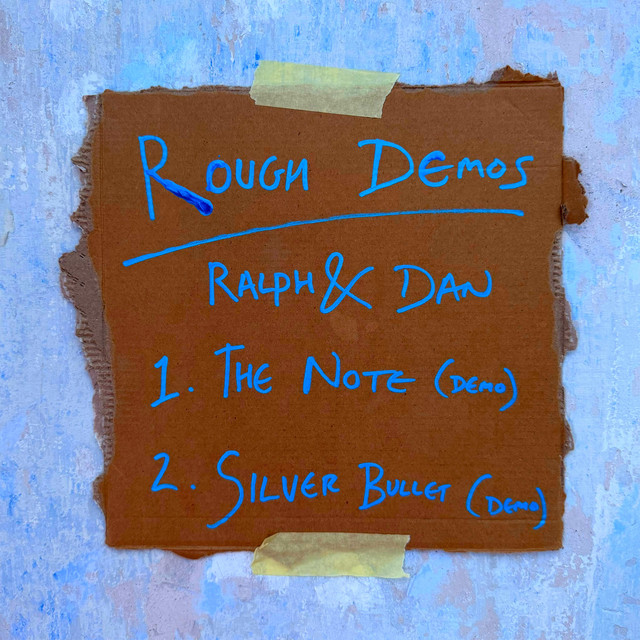 ROUGH DEMOS
RALPH & DAN
1. THE NOTE (DEMO)
2. SILVER BULLET (DEMO)